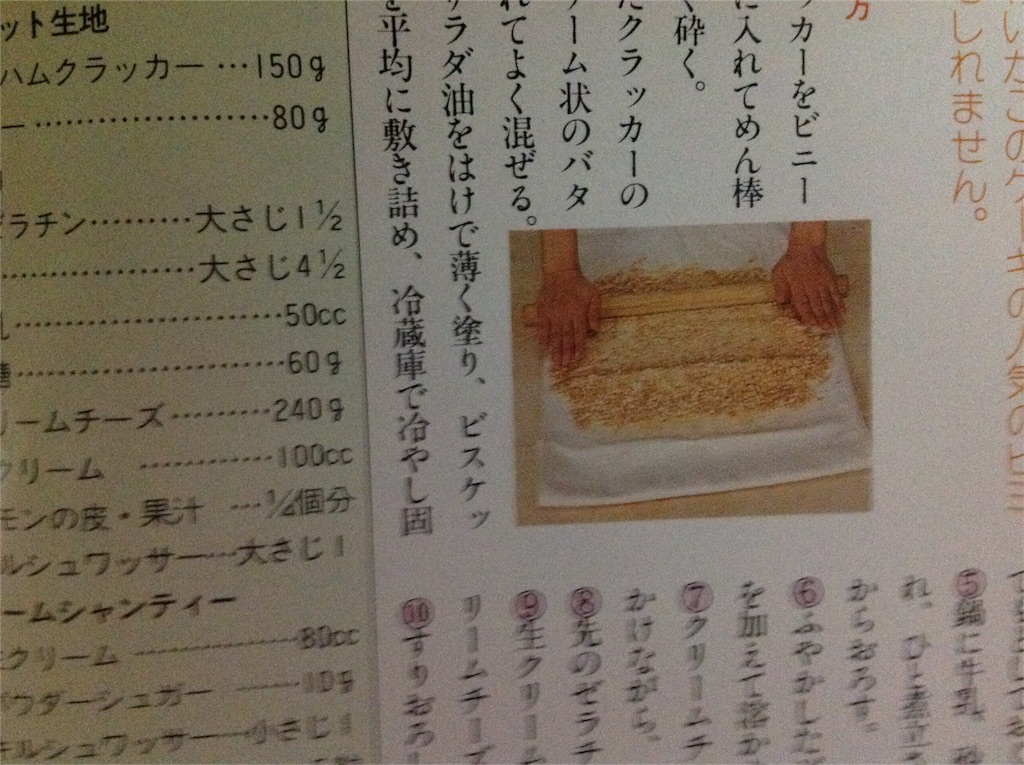 ット生地
ハムクラッカー…150g
ー……………………80g
ゼラチン………大さじ1½
………………大さじ4½
乳……………………50cc
糖……………………60g
リームチーズ………240g
クリーム …………100cc
モンの皮・果汁 …¼個分
ルシュワッサー…大さじ1
ームシャンティー
クリーム ……………80cc
パウダーシュガー ……10g
キルシュワッサー…小さじ1
いたこのケーキの人気のヒミ
しれません。
方
カーをビニー
に入れてめん棒
く砕く。
たクラッカーの
ーム状のバタ
れてよく混ぜる。
ラダ油をはけで薄く塗り、ビスケッ
を平均に敷き詰め、冷蔵庫で冷やし固
⑤鍋に牛乳、砂
れ、ひと煮立
からおろす。
⑥ふやかした
を加えて溶か
⑦クリームチ
かけながら、
⑧先のゼラチ
⑨生クリーム
リームチーズ
⑩すりおろし